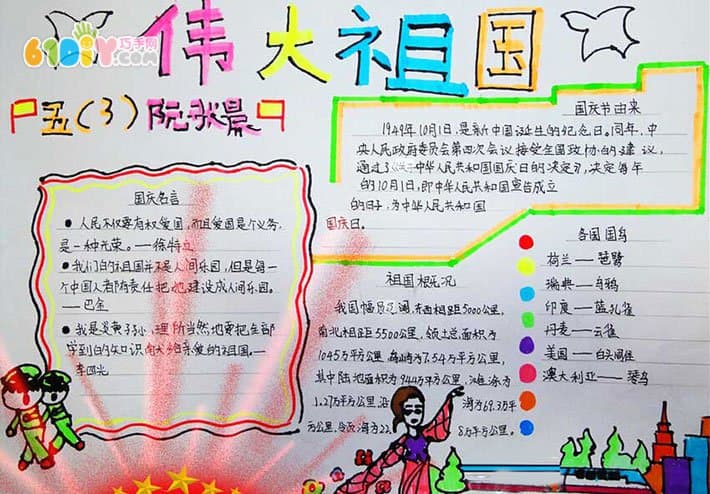 61DIY巧手网
.com
伟大祖国
五(3)阮秋晨
国庆节由来
1949年10月1日,是新中国诞生的纪念日。同年,中
央人民政府委员会第四次会议接受全国政协的建议,
通过了《关于中华人民共和国国庆日的决定》,决定每年
的10月1日,即中华人民共和国宣告成立
的日子,为中华人民共和国
国庆日。
国庆名言
人民不仅要有权爱国,而且爱国是个义务,
是一种光荣。——徐特立
我们的祖国并不是人间乐园,但是每一
个中国人都有责任把她建设成人间乐园。
——巴金
我是炎黄子孙,理所当然地要把全部
学到的知识 给亲爱的祖国。——
李四光
祖国概况
我国幅员辽阔,东西相距5000公里,
南北相距5500公里,领土总面积为
1045万平方公里,
其中陆地面积为944万平方公里,滩涂为
1.27万平方公里,沿 海为69.3万平
方公里,领海为22. 8万平方公里。
各国国鸟
荷兰——琵鹭
瑞典——乌鸦
印度——蓝孔雀
丹麦——云雀
美国——白头海雕
澳大利亚——琴鸟